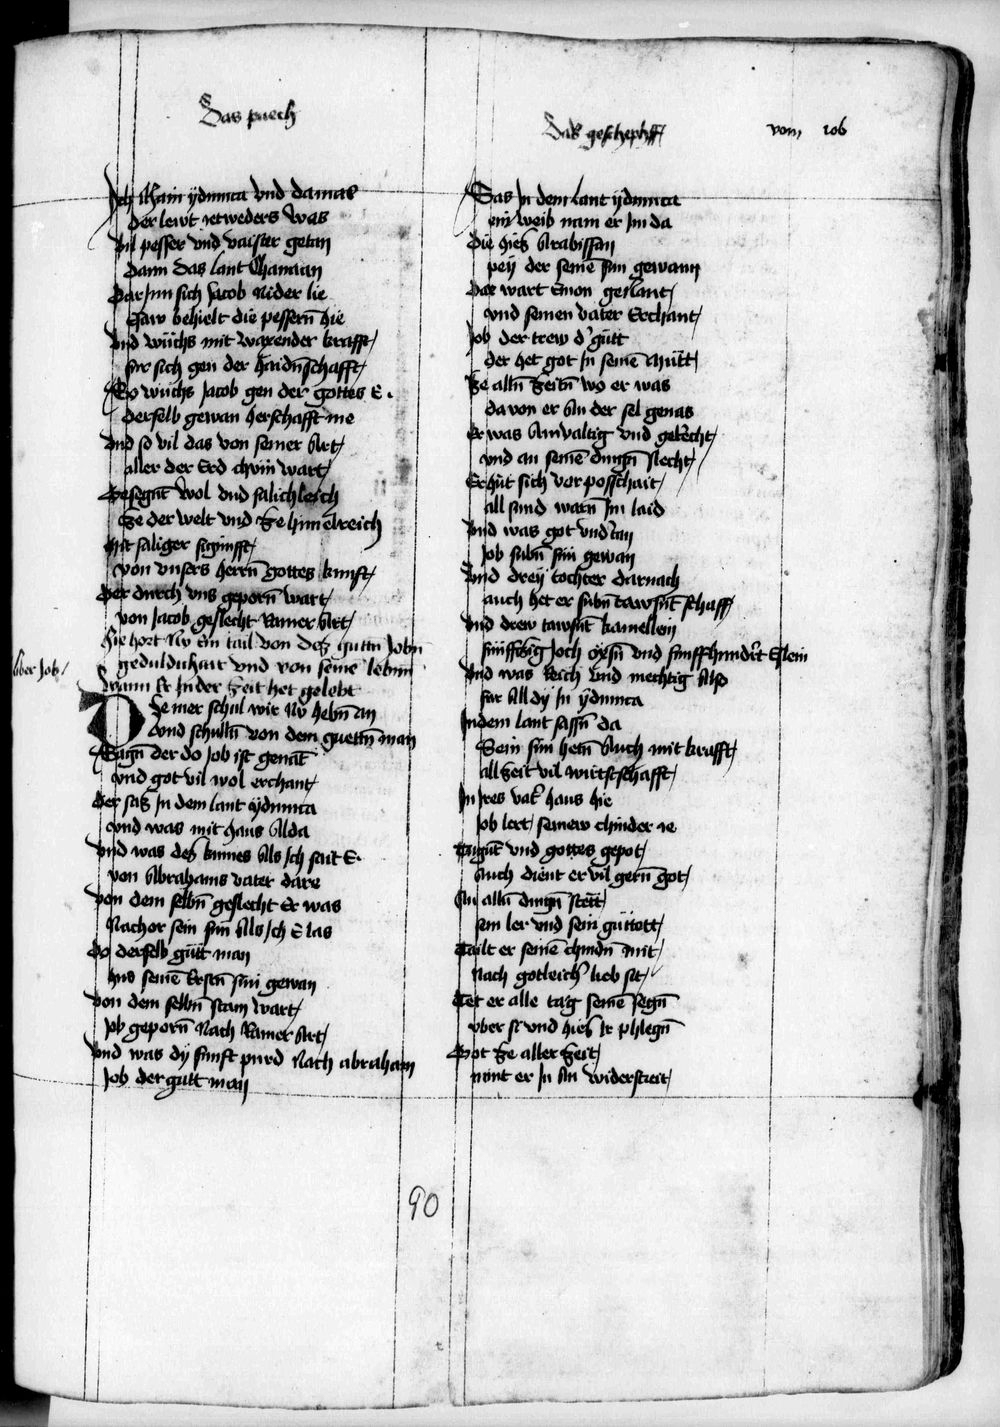 Das puech
Das geschephff vom iob
Ich main ydumea vnd damas
der lewt ietweders was
vil pesser vnd vaister getan
dann das lant Chanaan
Dar Inn sich Jacob nider lie
Esaw behielt die pessern hie
vnd wüchs mit waxender krafft
für sich gen der haidnschafft
So wüchs Jacob gen der gottes E.
derselb gewan herschafft me
vnd so vil das von seiner Art
aller der Erd chunn wart
Gesegnt wol vnd salichleich
Ze der welt vnd Ze himelreich
mit saliger signufft
von vnsers herrn gottes kunft
Der durch vns geporn wart
von Jacob geslecht Rainer Art
hie hort Nw ein tail von des guttn Jobn
geduldichait vnd von seine lebnn
wann Er In der Zeit het gelebt
über Job
Die mer schul wir Nw hebn an
vnd schulln von dem guettn man
Sagn der do Job ist genat
vnd got vil wol erchant
Der sas In dem lant ydumea
vnd was mit haus Alda
vnd was des kunnes Als Ich sait E.
von Abrahams vater dare
von dem selbn geslecht Er was
Nachor sein sun Als Ich E las
do derselb gütt man
hus seine Erstn sun gewan
von dem selbn stam wart
Job geporn Nach Rainer Art
vnd was dy funft purd Nach abraham
Job der gutt man
Sas In dem lant ydumea
ein weib nam er Im da
die hies Arabissan
pey der seine sun gewann
Der wart Emon genant
vnd seinen vater Erchant
Job der trew d' gutt
der het got In seine mütt
Ze alln Zeitn wo er was
da von er An der sel genas
Er was Ainvaltig vnd gerecht
vnd an seine dingn Slecht
Er hüt sich vor posshait
all sund warn Im laid
vnd was got vndtan
Job subn sun gewan
vnd drey tochter darnach
auch het er subn tawsnt schaff
vnd drew tawsnt kamellein
funffczig Joch oxsn vnd funffhundt Eslein
vnd was Reich vnd mechtig Also
für All dy In ydumea
In dem lant sassn da
Sein sun hetn Auch mit krafft
all Zeit vil wirtschafft
In Ires vat' haus hie
Job lert seinew chinder ie
Tugnt vnd gottes gepot
Auch dient er vil gern got
An alln dingn stett
sein ler vnd sein güttett
Tailt er seine chindn mit
nach gotleich' lieb sit
Tet er alle tag seine segn
vber sy vnd hies Ir phlegn
Got Ze aller Zeit
mint er In An widerstreit
90